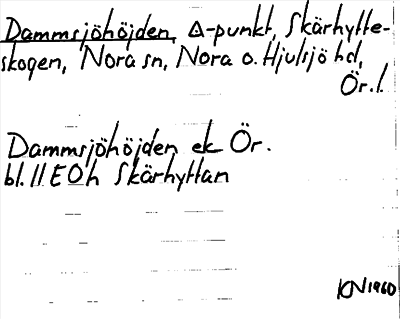 Dammsjöhöjden, Δ-punkt, Skärhytte-
skogen, Nora sn, Nora o. Hjulsjö hd,
Ör. l.
Dammsjöhöjden ek Ör.
bl. 11 E 0 h Skärhyttan
KN 1960